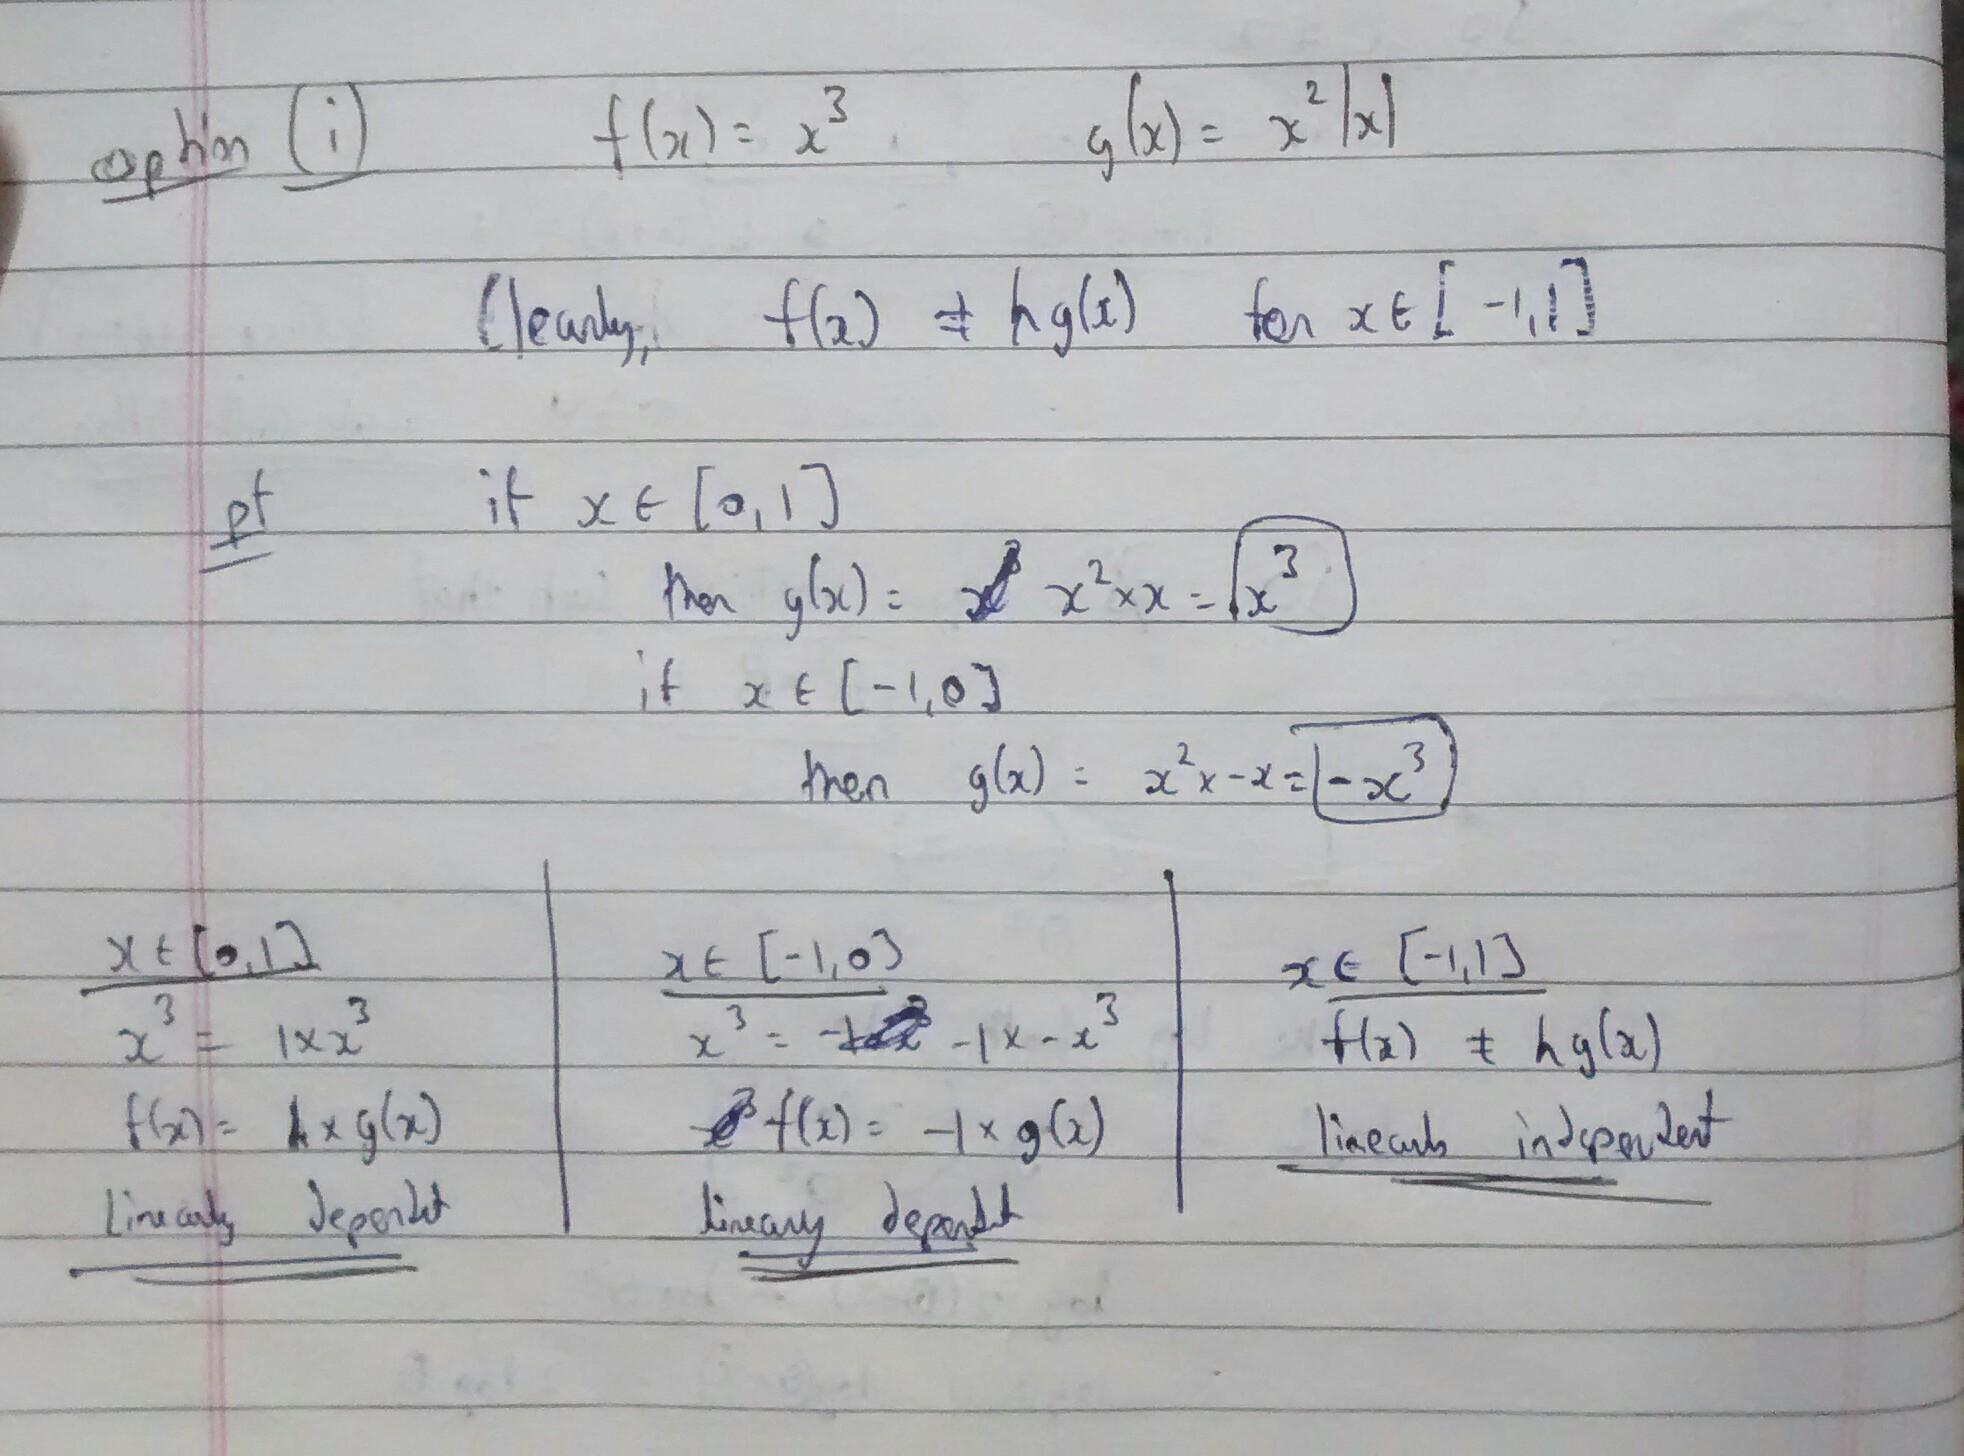 option (i) f(x) = x³ g(x) = x²|x|
Clearly, f(x) ≠ hg(x) for x ∈ [-1,1]
pf if x ∈ [0,1]
then g(x) = x² × x = x³
if x ∈ [-1,0]
then g(x) = x² × -x = -x³
x ∈ [0,1]
x³ = 1 × x³
f(x) = h × g(x)
Linearly dependt
x ∈ [-1,0]
x³ = -1 × -x³
f(x) = -1 × g(x)
linearly dependt
x ∈ [-1,1]
f(x) ≠ hg(x)
linearly independent